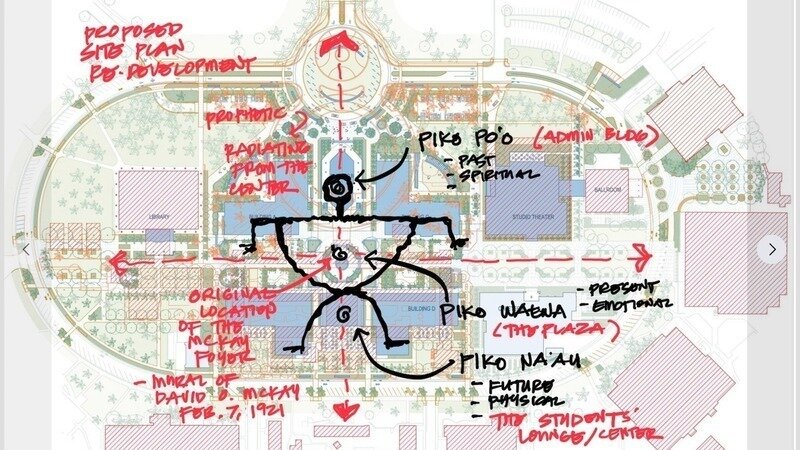 PROPOSED
SITE PLAN
RE-DEVELOPMENT
PROPHETIC
RADIATING
FROM THE
CENTER
PIKO PO'O (ADMIN BLDG)
- PAST
- SPIRITUAL
LIBRARY
STUDIO THEATER
BALLROOM
ORIGINAL
LOCATION
OF THE
MCKAY
FOYER
- MURAL OF
DAVID O. MCKAY
FEB. 7, 1921
BUILDING D
PIKO WAENA
(THE PLAZA)
- PRESENT
- EMOTIONAL
PIKO NA'AU
- FUTURE
- PHYSICAL
- THE STUDENTS'
LOUNGE/CENTER